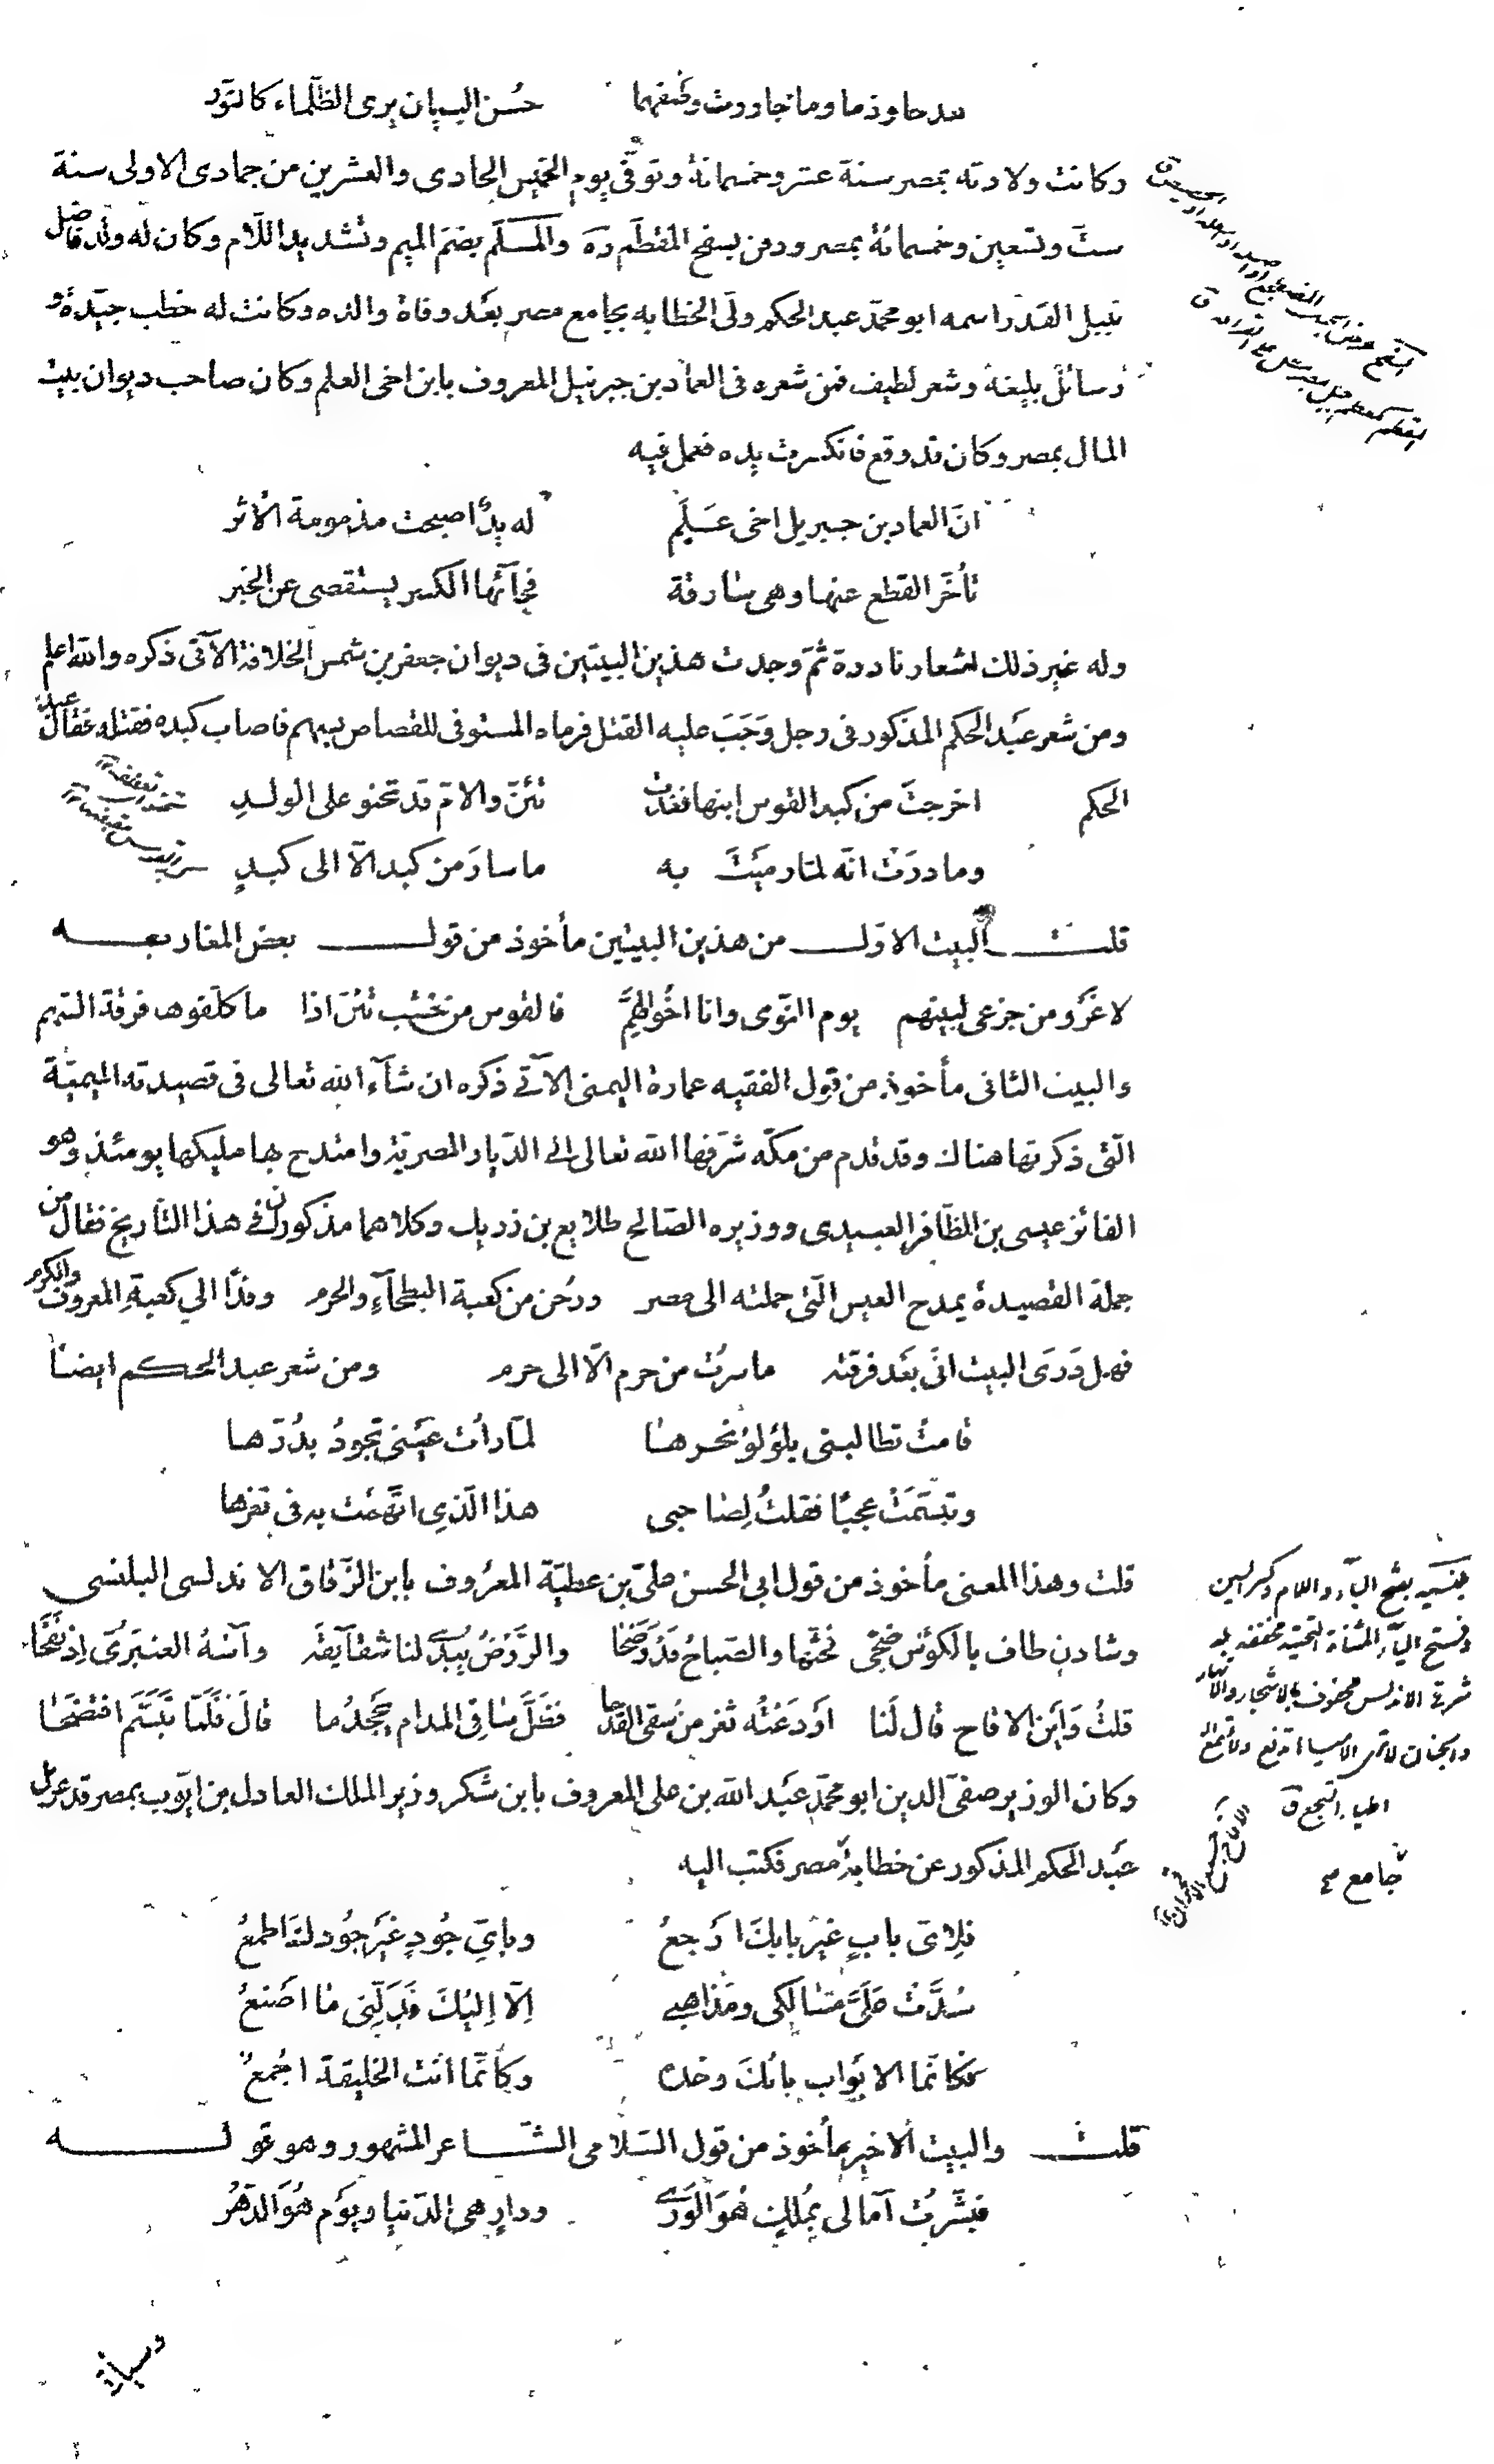 مدحا وذما وما جاوزت وصفهما حُسن البيان يرى الظّلماء كالنّور
وكانت ولادته بمصر سنة عشر وخمسمائة وتوفّى يوم الخميس الحادى والعشرين من جمادى الاولى سنة
ستّ وتسعين وخمسمائة بمصر ودفن بسفح المقطّم رَه والمُسَلّم بضمّ الميم وتشديد اللّام وكان له ولد فاضل
نبيل القدر اسمه ابو محمّد عبد الحكم ولّى الخطابه بجامع مصر بعد وفاة والده وكانت له خطب جيّدة و
رسائل بليغة وشعر لطيف فمن شعره فى العماد بن جبرئيل المعروف بابن اخى العلم وكان صاحب ديوان بيت
المال بمصر وكان قد وقع فانكسرت يده فعمل فيه
انّ العماد بن جبريل اخى عَلَمٍ له يدٌ اصبحت مذمومة الأثر
تأخّر القطع عنها وهى سارقة فجآئها الكسر يستقصى عن الخبر
وله غير ذلك اشعار نادرة ثمّ وجدت هذين البيتين فى ديوان جعفر بن شمس الخلافة الآتى ذكره والله اعلم
ومن شعر عبد الحكم المذكور فى رجل وَجَبَ عليه القتل فرماه المستوفى للقصاص بسهم فاصاب كبده فقتله فقال عبد
الحكم اخرجتَ من كبد القوس ابنها فغدت تئنّ والامّ قد تحنو على الولدِ
وما درَت انّه لمّا رميتَ به ما سارَ من كبد الّا الى كبدٍ
قلت البيت الاوّل من هذين البيتين مأخوذ من قول بعض المغاربه
لا غَرْوَ من جزعى لبينهم يوم النّوى وانا اخُو الهَمِّ فالقوس من خشب تئنّ اذا ما كلّفوها فرقة السّهم
والبيت الثانى مأخوذ من قول الفقيه عمارة اليمنى الآتى ذكره ان شآء الله تعالى فى قصيدته الميميّة
الّتى ذكرتها هناك وقد قدم من مكّه شرّفها الله تعالى الى الدّيار المصريّة وامتدح بها مليكها يومئذ وهو
الفائز عيسى بن الظّافر العبيدى ووزيره الصّالح طلايع بن رزيك وكلاهما مذكوران فى هذا التأريخ فقال من
جملة القصيدة يمدح العيس الّتى حملته الى مصر ورحن من كعبة البطحآءِ والحرم وفدًا الي كعبةِ المعروف والكرم
فهل دَرَى البيت انّى بَعْد فرقته ما سرتُ من حرم الّا الى حرم ومن شعر عبد الحكم ايضًا
قامت تطالبنى بلؤلؤ نحرها لمّا رأت عينى تجودُ بدُرّها
وتبسّمَتْ عجبًا فقلتُ لِصاحبى هذا الّذى اتّهَمَت به فى ثغرها
قلت وهذا المعنى مأخوذ من قول ابى الحسن علىّ بن عطيّة المعرُوف بابن الزّقاق الاندلسى البلنسى
وشادنٍ طاف بالكؤس ضحًى فحثّها والصّباحُ قَدْ وَضَحَا والرَّوْضُ يُبدى لنا شقآيقه وآسُهُ العنبَرىّ اِذ نفَحَا
قلتُ وَاَيْنَ الاقاح قال لَنا اَوْدَعْتُه ثغر من سُقى القدحا فظَلَّ سَاقى المدام يَجْحَدُ ما قالَ فَلَمّا تَبَسَّمَ افتضحَا
وكان الوزير صفىّ الدين ابو محمّد عَبْد الله بن على المعروف بابن شكر وزير الملك العادل بن ايّوب بمصر قد عزل
عَبْد الحكم المذكور عن خطابة مصر فكتب اليه
فلاىّ بابٍ غيْرِ بابكَ اَرْجعُ وبايّ جُودٍ غَيْرِ جُودك اطمعُ
سُدَّتْ عَلَىَّ مَسالكى ومَذاهبى اِلّا اِليْكَ فَدَلّنِى مَا اصْنَعُ
فكانّما الابْواب بابُكَ وحده وكأنّما انْت الخليقة اجْمعُ
قلت والبيت الاخير مأخوذ من قول السّلامى الشّاعر المشهور وهو قوله
فبَشّرتُ آمالى بمُلكٍ هُوَ الوَرَى ودارٍ هى الدّنيا ويَوْمٍ هُوَ الدّهْرُ
بلنسيه بفتح البآء واللام وكسر السين
وفتح اليآء المثناة التحتية مخففه بلد
شرقى الاندلس محفوف بالاشجار والانهار
جامع